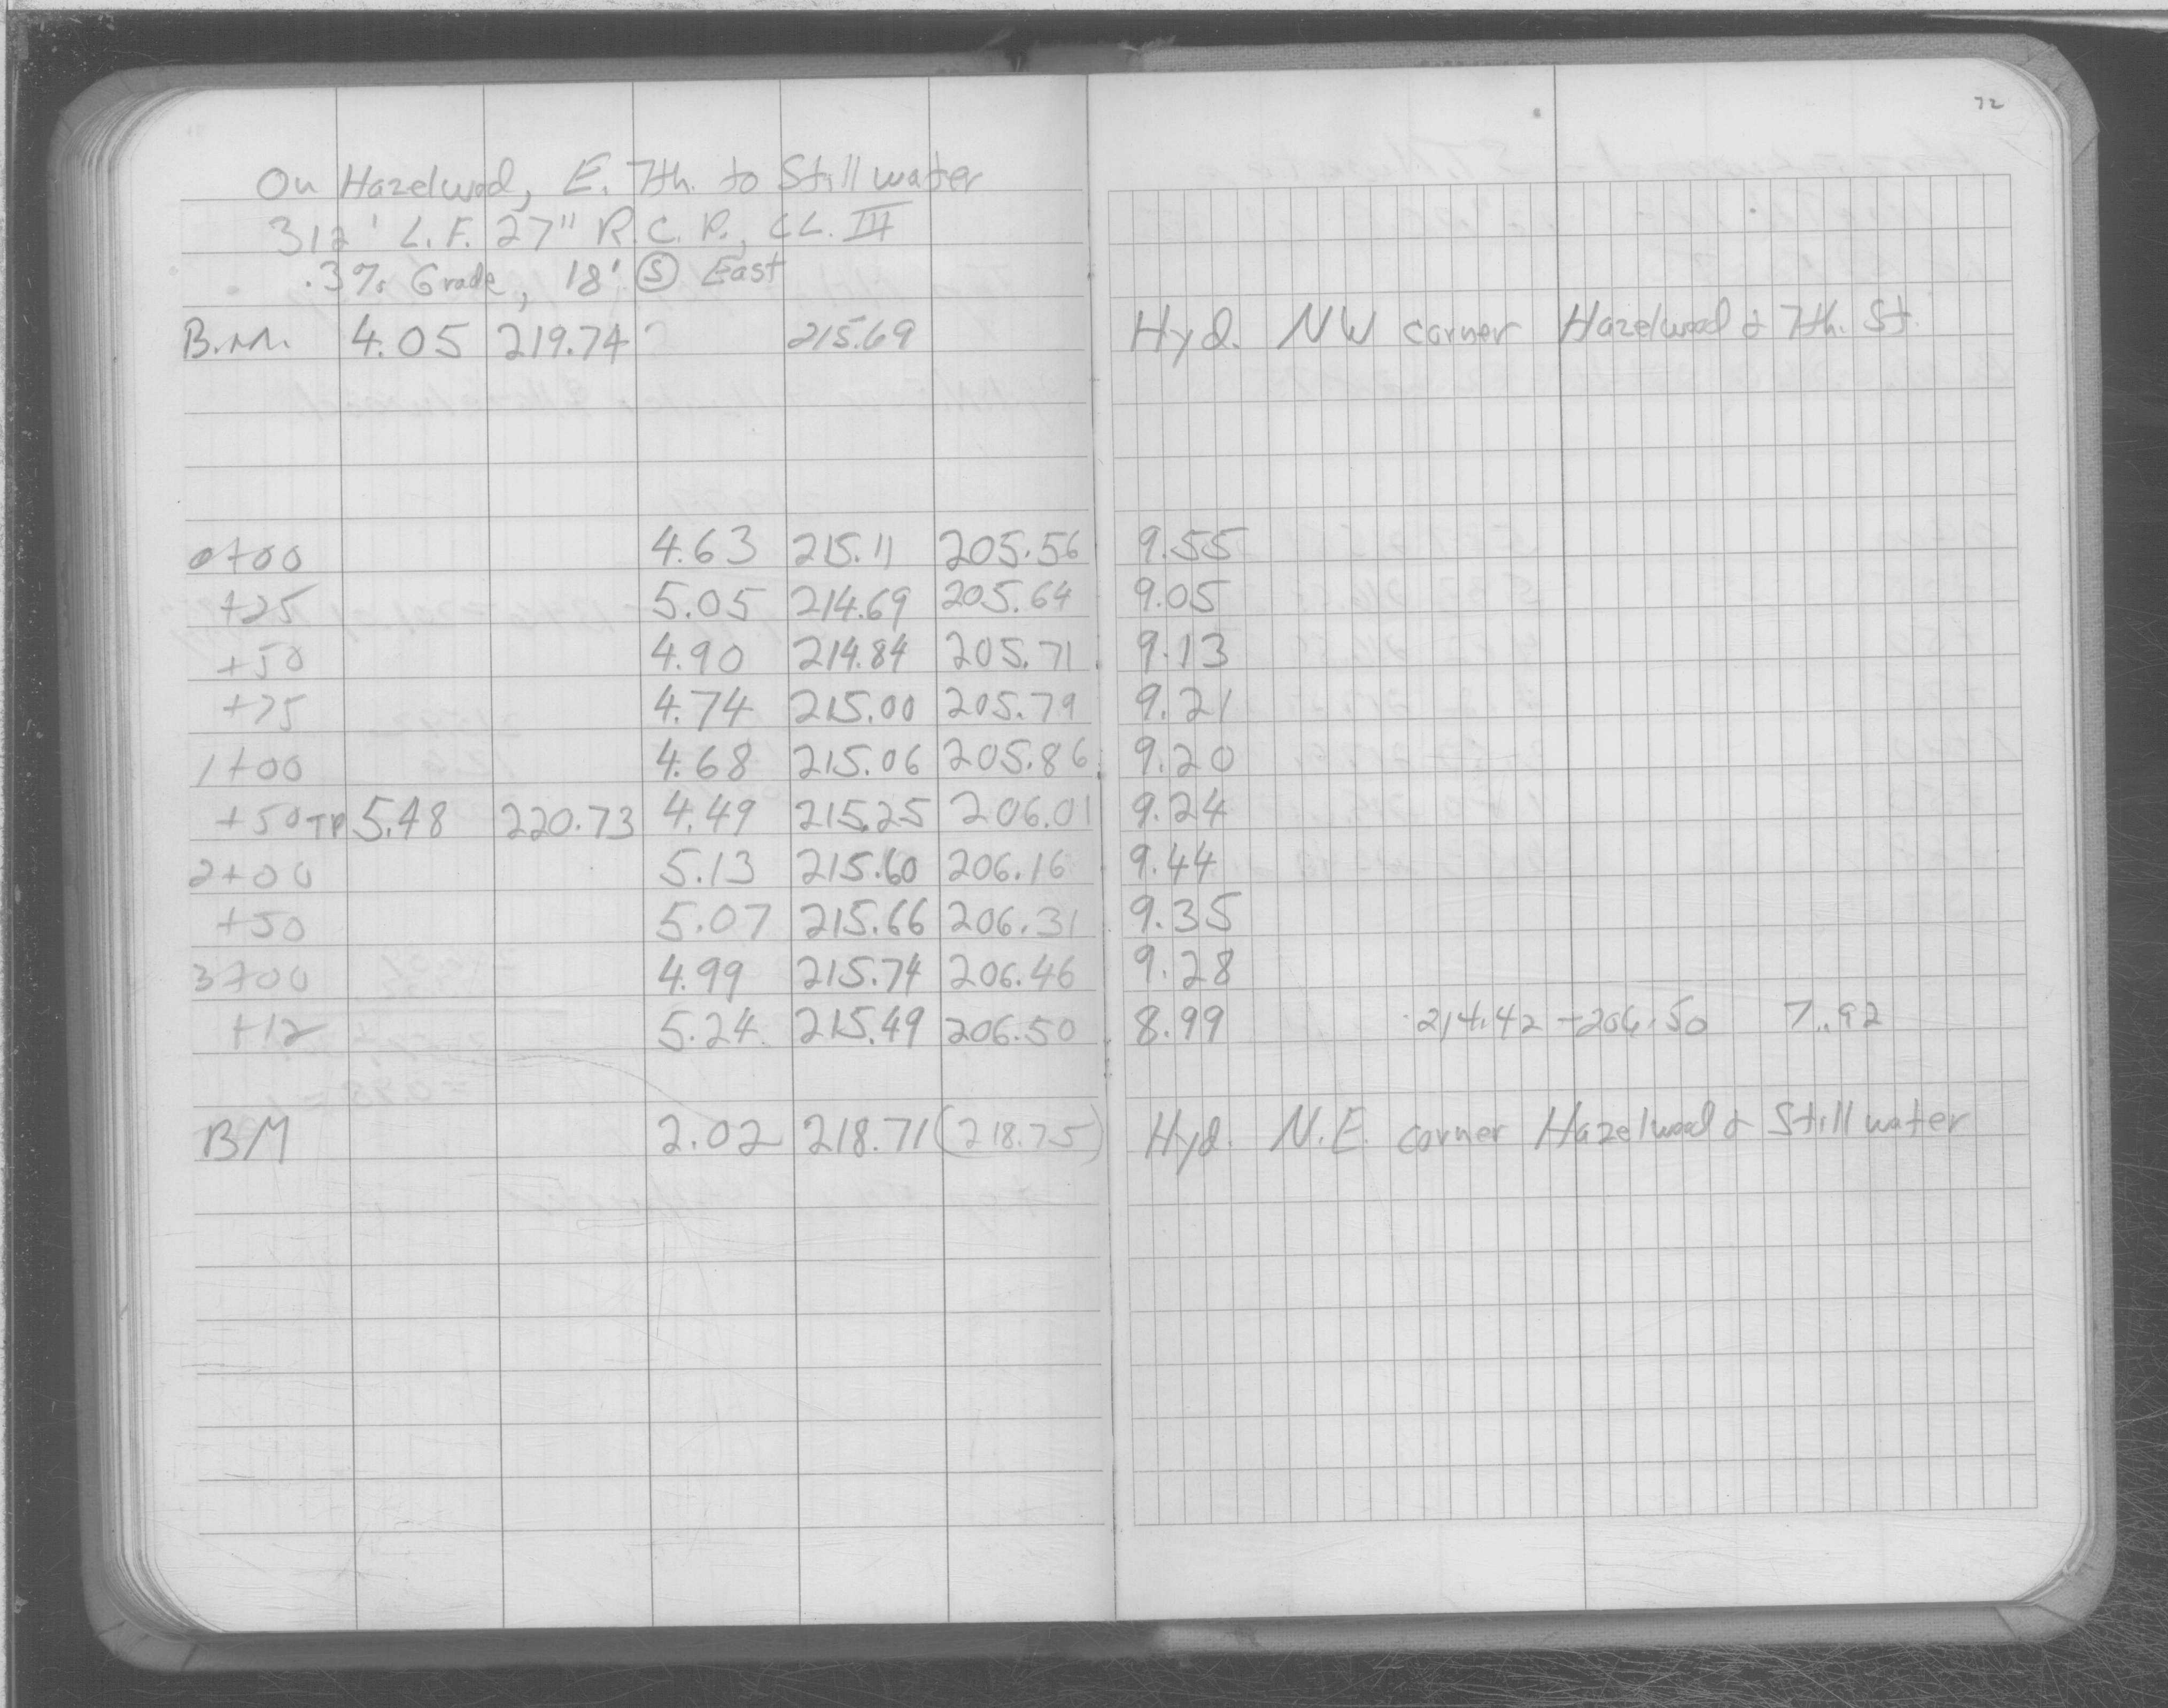 72
On Hazelwood, E. 7th. to Stillwater
312' L.F. 27" R.C.P., CL. III
.3% Grade, 18' Ⓢ East
B.M. 4.05 219.74 215.69 Hyd. NW corner Hazelwood & 7th. St.
0+00 4.63 215.11 205.56 9.55
+25 5.05 214.69 205.64 9.05
+50 4.90 214.84 205.71 9.13
+75 4.74 215.00 205.79 9.21
1+00 4.68 215.06 205.86 9.20
+50 TP 5.48 220.73 4.49 215.25 206.01 9.24
2+00 5.13 215.60 206.16 9.44
+50 5.07 215.66 206.31 9.35
3+00 4.99 215.74 206.46 9.28
+12 5.24 215.49 206.50 8.99 214.42 - 206.50 7.92
BM 2.02 218.71 (218.75) Hyd. N.E. corner Hazelwood & Stillwater